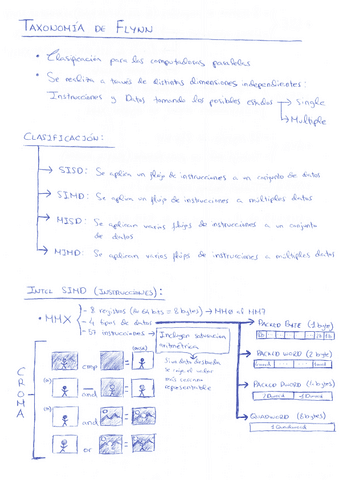 TAXONOMÍA DE FLYNN
• Clasificación para las computadoras paralelas
• Se realiza a través de distintas dimensiones independientes:
Instrucciones y Datos tomando los posibles estados → Single
→ Multiple
CLASIFICACIÓN:
→ SISD: Se aplica un flujo de instrucciones a un conjunto de datos
→ SIMD: Se aplica un flujo de instrucciones a múltiples datos
→ MISD: Se aplican varios flujos de instrucciones a un conjunto
de datos
→ MIMD: Se aplicaran varios flujos de instrucciones a múltiples datos
INTEL SIMD (INSTRUCCIONES):
• MMX
- 8 registros (de 64 bits = 8 bytes) → MM0 al MM7
- 4 tipos de datos
- 57 instrucciones →
Incluyen saturación
aritmética
Si un dato desborda
se coge el valor
más cercano
representable
PACKED BYTE (1 byte)
PACKED WORD (2 byte)
PACKED DWORD (4 byte)
QUADWORD (8 bytes)
1 Quadword
CROMA
cmp
and
and
or